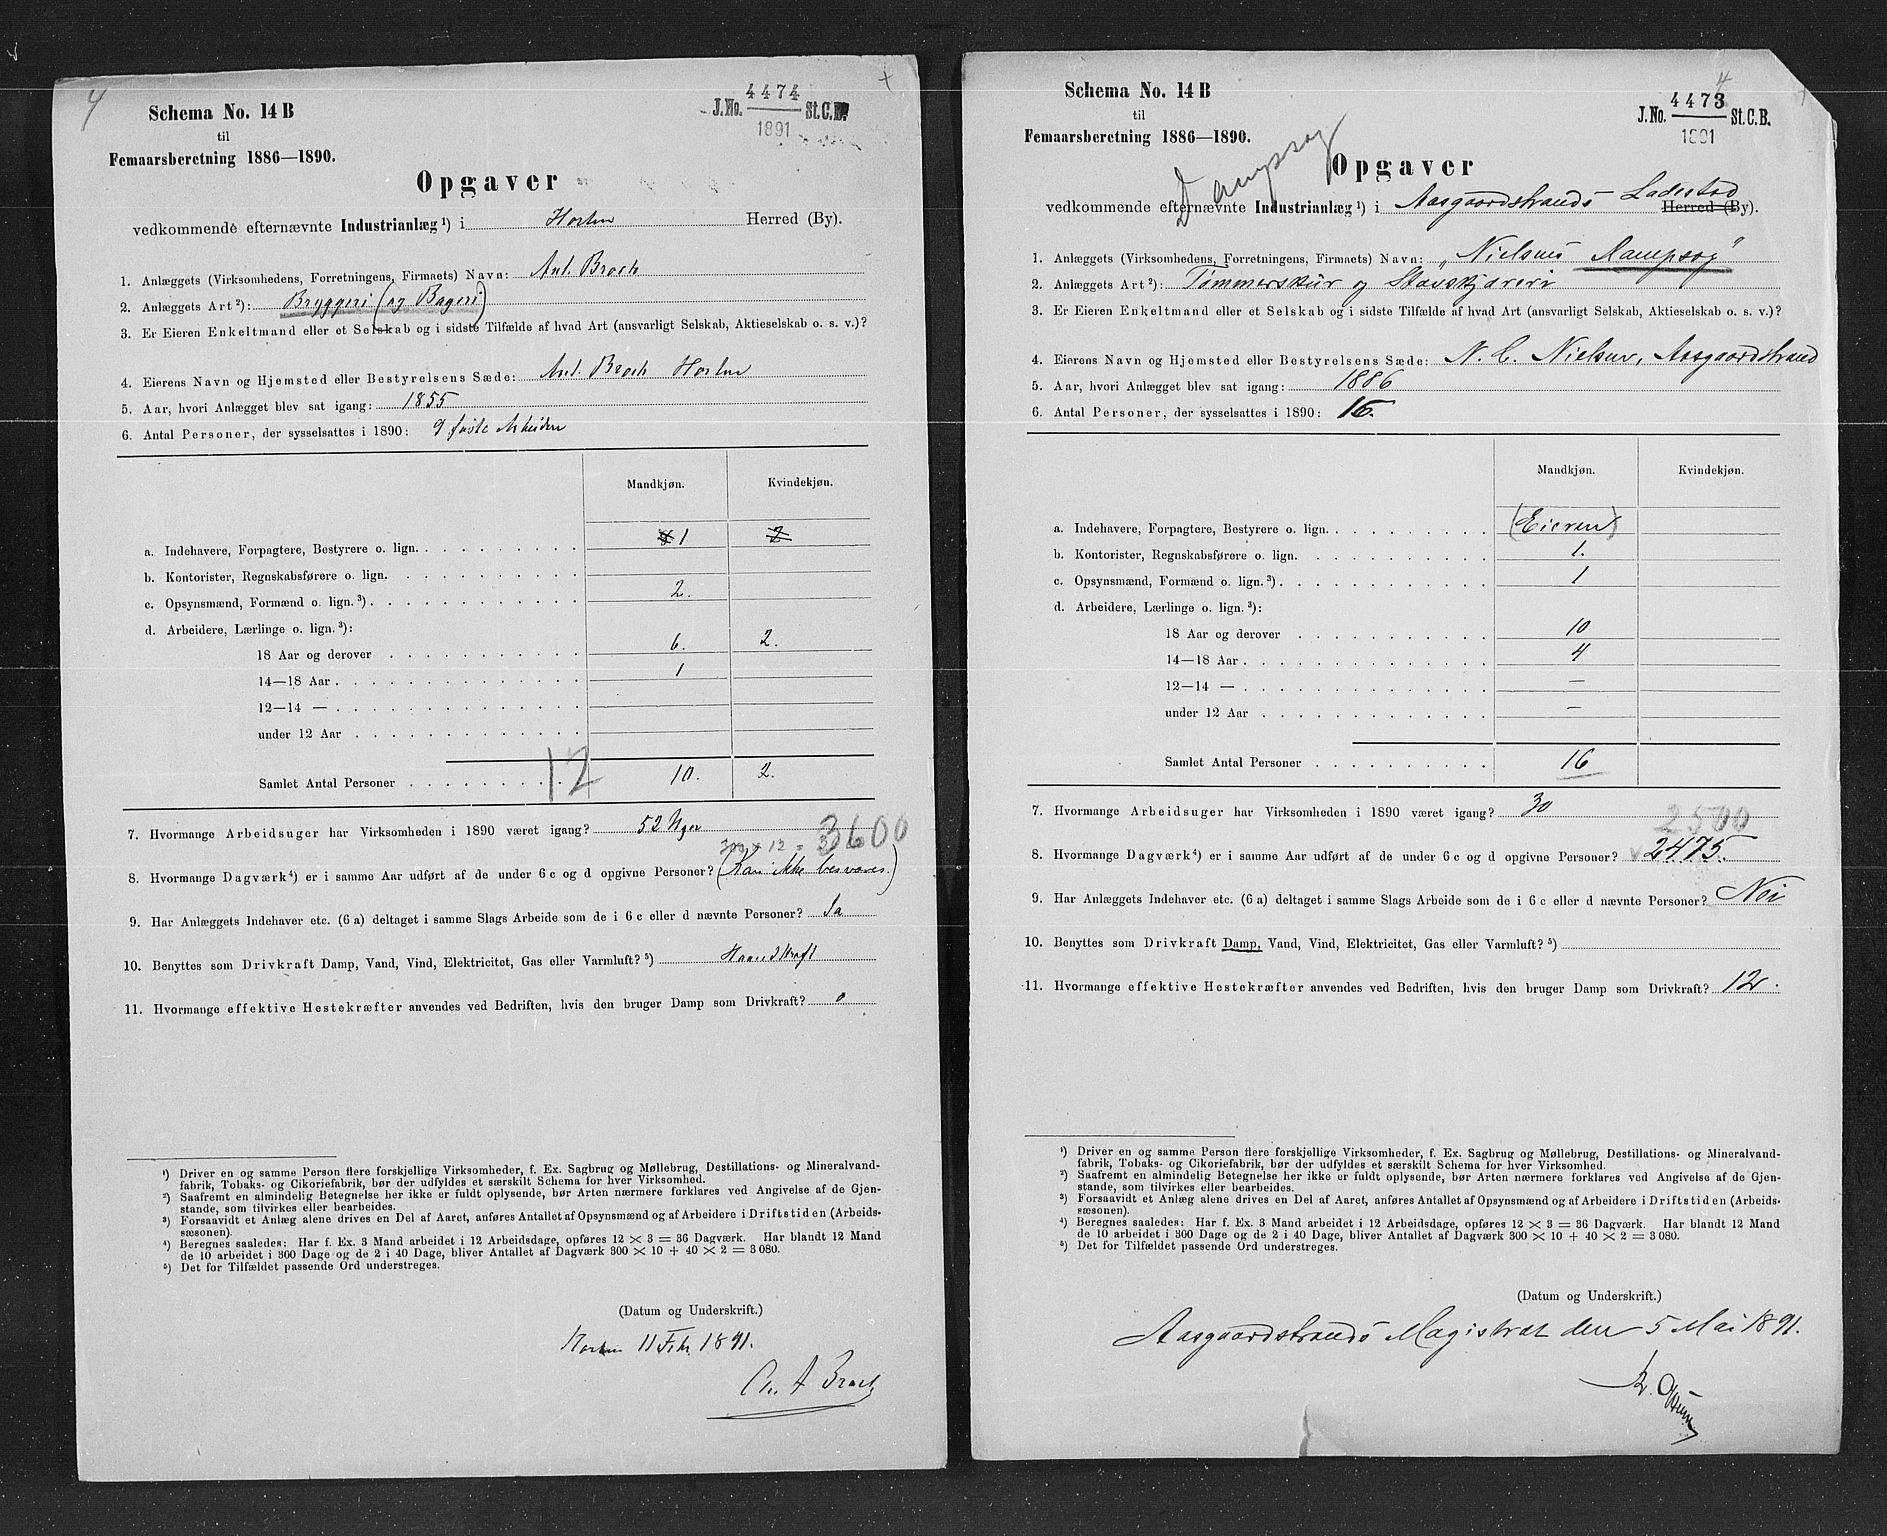 4
Schema No. 14 B
til
Femaarsberetning 1886—1890.
J.No. 4474 St.C.B.
1891
Opgaver
vedkommende efternævnte Industrianlæg ¹) i Horten Herred (By).
1. Anlæggets (Virksomhedens, Forretningens, Firmaets) Navn: Ant. Broch
2. Anlæggets Art ²): Bryggeri (og Bageri)
3. Er Eieren Enkeltmand eller et Selskab og i sidste Tilfælde af hvad Art (ansvarligt Selskab, Aktieselskab o. s. v.)?
4. Eierens Navn og Hjemsted eller Bestyrelsens Sæde: Ant. Broch Horten
5. Aar, hvori Anlægget blev sat igang: 1855
6. Antal Personer, der sysselsattes i 1890: 9 faste Arbeidere
Mandkjøn. Kvindekjøn.
a. Indehavere, Forpagtere, Bestyrere o. lign. 1 2
b. Kontorister, Regnskabsførere o. lign.
c. Opsynsmænd, Formænd o. lign. ³) 2.
d. Arbeidere, Lærlinge o. lign. ³):
18 Aar og derover 6. 2.
14—18 Aar 1
12—14 —
under 12 Aar
Samlet Antal Personer 12 10. 2.
7. Hvormange Arbeidsuger har Virksomheden i 1890 været igang? 52 Uger
300 × 12 = 3600
8. Hvormange Dagværk ⁴) er i samme Aar udført af de under 6 c og d opgivne Personer? (Kan ikke besvares.)
9. Har Anlæggets Indehaver etc. (6 a) deltaget i samme Slags Arbeide som de i 6 c eller d nævnte Personer? Ja
10. Benyttes som Drivkraft Damp, Vand, Vind, Elektricitet, Gas eller Varmluft? ⁵) Haandkraft
11. Hvormange effektive Hestekræfter anvendes ved Bedriften, hvis den bruger Damp som Drivkraft? 0
¹) Driver en og samme Person flere forskjellige Virksomheder, f. Ex. Sagbrug og Møllebrug, Destillations- og Mineralvand-
fabrik, Tobaks- og Cikoriefabrik, bør der udfyldes et særskilt Schema for hver Virksomhed.
²) Saafremt en almindelig Betegnelse her ikke er fuldt oplysende, bør Arten nærmere forklares ved Angivelse af de Gjen-
stande, som tilvirkes eller bearbeides.
³) Forsaavidt et Anlæg alene drives en Del af Aaret, anføres Antallet af Opsynsmænd og af Arbeidere i Driftstiden (Arbeids-
sæsonen).
⁴) Beregnes saaledes: Har f. Ex. 3 Mand arbeidet i 12 Arbeidsdage, opføres 12 × 3 = 36 Dagværk. Har blandt 12 Mand
de 10 arbeidet i 300 Dage og de 2 i 40 Dage, bliver Antallet af Dagværk 300 × 10 + 40 × 2 = 3 080.
⁵) Det for Tilfældet passende Ord understreges.
(Datum og Underskrift.)
Horten 11 Febr. 1891.
Chr. A Broch
4
Schema No. 14 B
til
Femaarsberetning 1886—1890.
J.No. 4473 St.C.B.
1891
Dampsag
Opgaver
vedkommende efternævnte Industrianlæg ¹) i Aasgaardstrands Ladested Herred (By).
1. Anlæggets (Virksomhedens, Forretningens, Firmaets) Navn: „Nielsens Dampsag"
2. Anlæggets Art ²): Tømmerskur og Stavskjæreri
3. Er Eieren Enkeltmand eller et Selskab og i sidste Tilfælde af hvad Art (ansvarligt Selskab, Aktieselskab o. s. v.)?
4. Eierens Navn og Hjemsted eller Bestyrelsens Sæde: N. C. Nielsen, Aasgaardstrand
5. Aar, hvori Anlægget blev sat igang: 1886
6. Antal Personer, der sysselsattes i 1890: 16.
Mandkjøn. Kvindekjøn.
a. Indehavere, Forpagtere, Bestyrere o. lign. (Eieren)
b. Kontorister, Regnskabsførere o. lign. 1.
c. Opsynsmænd, Formænd o. lign. ³) 1
d. Arbeidere, Lærlinge o. lign. ³):
18 Aar og derover 10
14—18 Aar 4
12—14 — —
under 12 Aar —
Samlet Antal Personer 16
7. Hvormange Arbeidsuger har Virksomheden i 1890 været igang? 30
2500
8. Hvormange Dagværk ⁴) er i samme Aar udført af de under 6 c og d opgivne Personer? 2475.
9. Har Anlæggets Indehaver etc. (6 a) deltaget i samme Slags Arbeide som de i 6 c eller d nævnte Personer? Nei
10. Benyttes som Drivkraft Damp, Vand, Vind, Elektricitet, Gas eller Varmluft? ⁵)
11. Hvormange effektive Hestekræfter anvendes ved Bedriften, hvis den bruger Damp som Drivkraft? 12.
¹) Driver en og samme Person flere forskjellige Virksomheder, f. Ex. Sagbrug og Møllebrug, Destillations- og Mineralvand-
fabrik, Tobaks- og Cikoriefabrik, bør der udfyldes et særskilt Schema for hver Virksomhed.
²) Saafremt en almindelig Betegnelse her ikke er fuldt oplysende, bør Arten nærmere forklares ved Angivelse af de Gjen-
stande, som tilvirkes eller bearbeides.
³) Forsaavidt et Anlæg alene drives en Del af Aaret, anføres Antallet af Opsynsmænd og af Arbeidere i Driftstiden (Arbeids-
sæsonen).
⁴) Beregnes saaledes: Har f. Ex. 3 Mand arbeidet i 12 Arbeidsdage, opføres 12 × 3 = 36 Dagværk. Har blandt 12 Mand
de 10 arbeidet i 300 Dage og de 2 i 40 Dage, bliver Antallet af Dagværk 300 × 10 + 40 × 2 = 3 080.
⁵) Det for Tilfældet passende Ord understreges.
(Datum og Underskrift.)
Aasgaardstrands Magistrat den 5 Mai 1891.